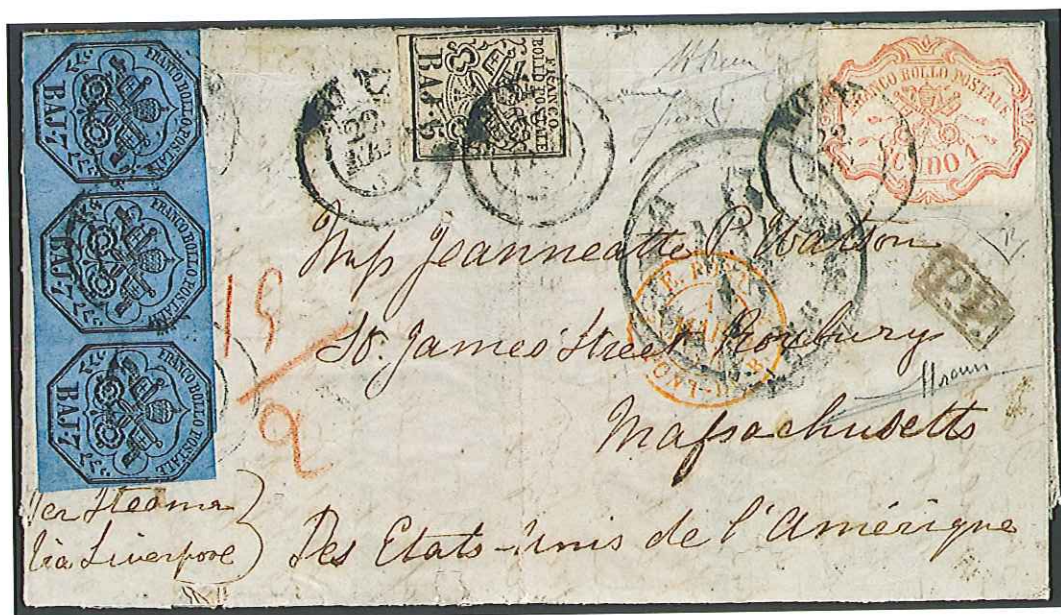 FRANCO BOLLO POSTALE
BAJ 7
FRANCO BOLLO POSTALE
BAJ 7
FRANCO BOLLO POSTALE
BAJ 7
FRANCO
BOLLO POSTALE
BAJ. 5
FRANCO BOLLO POSTALE
SCUDO 1
ROMA
22
P.P.
19
2
Miss Jeanneatte P. Watson
St. James Street Roxbury
Massachusetts
Des Etats-Unis de l'Amérique
Per Steamer
Via Liverpool